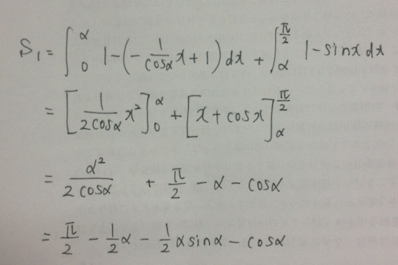 S₁ = ∫₀^α 1-(-\frac{1}{cosα}x+1)dx + ∫_α^{\frac{π}{2}} 1-sinx dx
= [\frac{1}{2cosα}x²]₀^α + [x+cosx]_α^{\frac{π}{2}}
= \frac{α²}{2cosα} + \frac{π}{2} - α - cosα
= \frac{π}{2} - \frac{1}{2}α - \frac{1}{2}αsinα - cosα